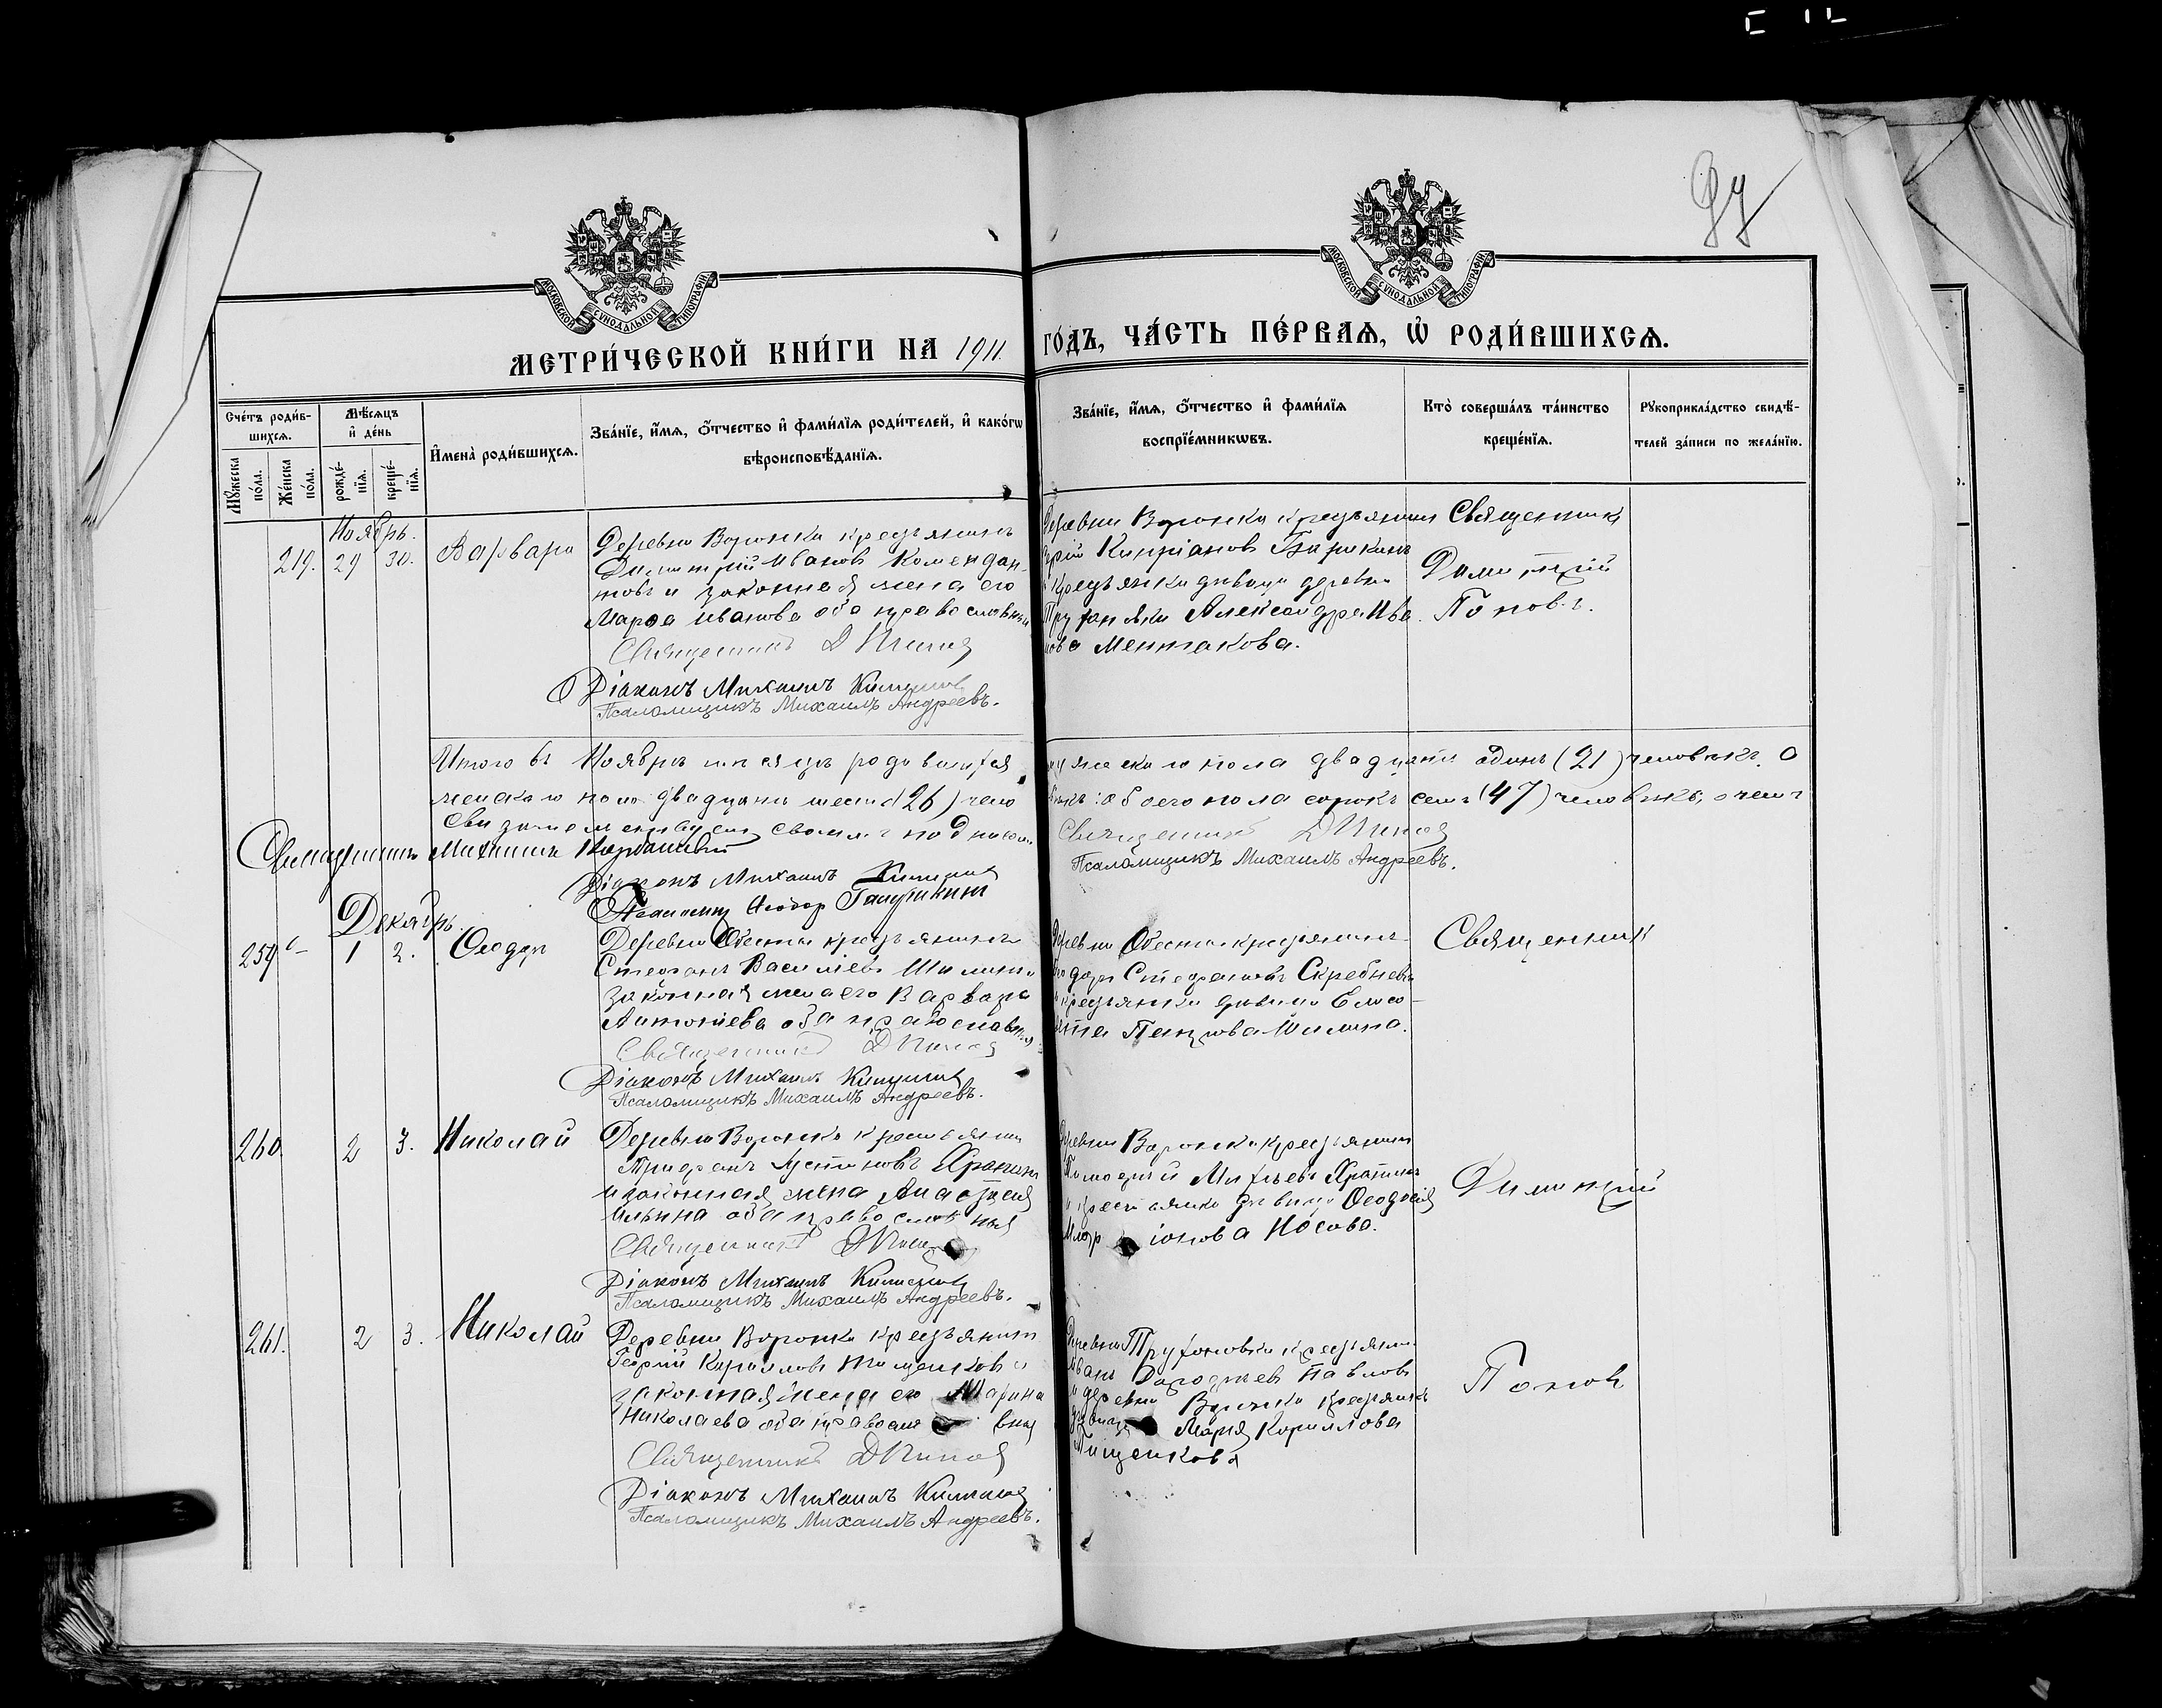 97
МОСКОВСКОЙ СУНОДАЛЬНОЙ ТИПОГРАФІИ
МОСКОВСКОЙ СУНОДАЛЬНОЙ ТИПОГРАФІИ
МЕТРИ́ЧЕСКОЙ КНИ́ГИ НА 1911 ГО́ДЪ, ЧА́СТЬ ПЕ́РВАѦ, Ѡ҆ РОДИ́ВШИХСѦ.
Сче́тъ роди́в-
шихсѧ.
Мꙋ́жеска по́ла.
Же́нска по́ла.
Мѣ́сѧцъ
и҆ де́нь
рожде́-
нїѧ.
креще́-
нїѧ.
И҆мена̀ роди́вшихсѧ.
Зва́нїе, и҆́мѧ, ѻ҆́тчество и҆ фами́лїѧ роди́телей, и҆ како́гѡ
вѣроисповѣ́данїѧ.
Зва́нїе, и҆́мѧ, ѻ҆́тчество и҆ фами́лїѧ
воспрїе́мникѡвъ.
Кто̀ соверша́лъ та́инство
креще́нїѧ.
Рꙋкоприкла́дство свидѣ́-
телей за́писи по жела́нїю.
Ноябрь.
219. 29 30. Варвара
Деревни Воронки крестьянинъ
Димитрій Ивановъ Комендан-
товъ и законная жена его
Марѳа Иванова оба православныя
Священникъ Д Поповъ
Діаконъ Михаилъ
Псаломщикъ Михаилъ Андреевъ.
Деревни Воронки крестьянинъ
Кипріановъ
крестьянка дѣвица деревни
Александра Ива
нова Ментакова.
Священникъ
Димитрій
Поповъ.
Итого въ Ноябрѣ мѣсяцѣ родившихся мужеска пола двадцать одинъ (21) человѣкъ, а
женскаго пола двадцать шесть (26) чело
вѣкъ: обоего пола сорокъ семь (47) человѣкъ, о чемъ
свидѣтельствуемъ своимъ подписомъ
Священникъ Д Поповъ
Священникъ Михаилъ
Псаломщикъ Михаилъ Андреевъ.
Діаконъ Михаилъ
Декабрь.
259 1 2. Ѳеодоръ
Деревни крестьянинъ
Стефанъ Василіевъ Шилинъ и
законная жена его Варвара
Антоніева оба православныя
Священникъ Д Поповъ
Діаконъ Михаилъ
Псаломщикъ Михаилъ Андреевъ.
Деревни крестьянинъ
Ѳеодоръ Стефановъ Скребневъ
и крестьянка дѣвица Елиса-
вета Шилина.
Священникъ
260. 2 3. Николай
Деревни Воронки крестьянинъ
Устиновъ Храпинъ
и законная жена Анастасія
Ильина оба православныя
Священникъ Д Поповъ
Діаконъ Михаилъ
Псаломщикъ Михаилъ Андреевъ.
Деревни Воронки крестьянинъ
Тимоѳей Храпинъ
и крестьянка дѣвица Ѳеодосія
Иларіонова Носова.
Димитрій
261. 2 3. Николай
Деревни Воронки крестьянинъ
Георгій Кирилловъ Тищенковъ и
законная жена его Марина
Николаева оба православныя
Священникъ Д Поповъ
Діаконъ Михаилъ
Псаломщикъ Михаилъ Андреевъ.
Деревни Труфоновки крестьянинъ
Иванъ Павловъ
и деревни Воронки крестьянка
дѣвица Марія Кириллова
Тищенкова
Поповъ